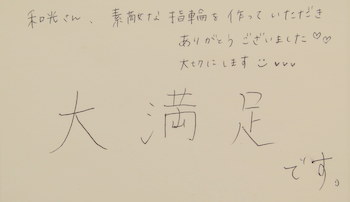 和光さん、素敵な指輪を作っていただき
ありがとうございました♡♡
大切にします☺♡♡♡
大満足
です。